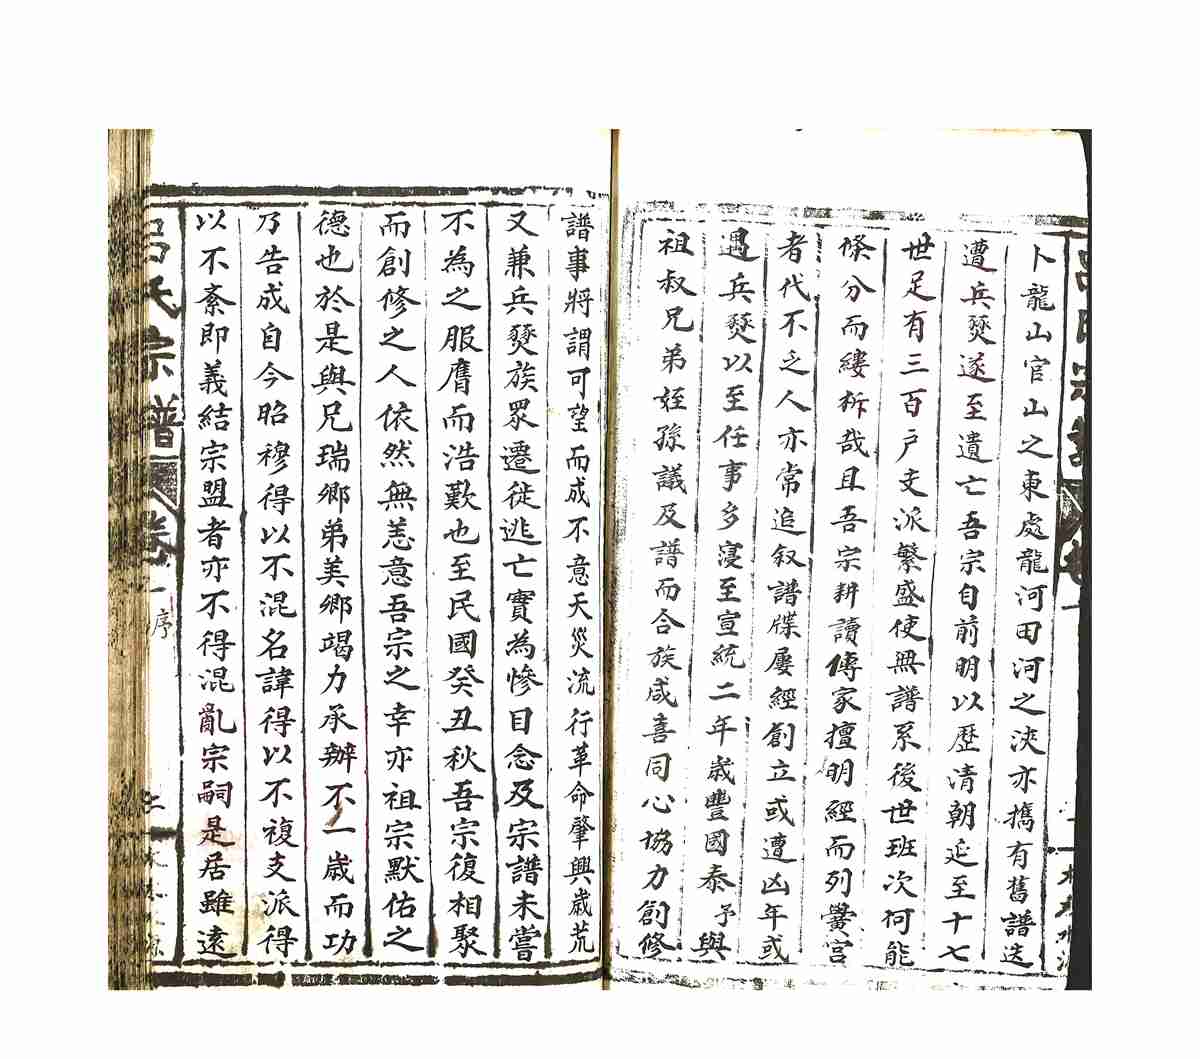 卜龍山官山之東處龍河田河之浹亦攜有舊譜迭
遭兵燹遂至遺亡吾宗自前明以歷清朝延至十七
世足有三百户支派繁盛使無譜系後世班次何能
條分而縷析哉且吾宗耕讀傳家擅明經而列黌宮
者代不乏人亦常追叙譜牒屢經創立或遭凶年或
遇兵燹以至任事多寢至宣統二年歲豐國泰予與
祖叔兄弟姪孫議及譜而合族咸喜同心協力創修
譜事將謂可望而成不意天災流行革命肇興歲荒
又兼兵燹族眾遷徙逃亡實為慘目念及宗譜未嘗
不為之服膺而浩歎也至民國癸丑秋吾宗復相聚
而創修之人依然無恙意吾宗之幸亦祖宗默佑之
德也於是與兄瑞鄉弟美鄉竭力承辦不一歲而功
乃告成自今昭穆得以不混名諱得以不複支派得
以不紊即義結宗盟者亦不得混亂宗嗣是居雖遠
呂氏宗譜 卷一 序